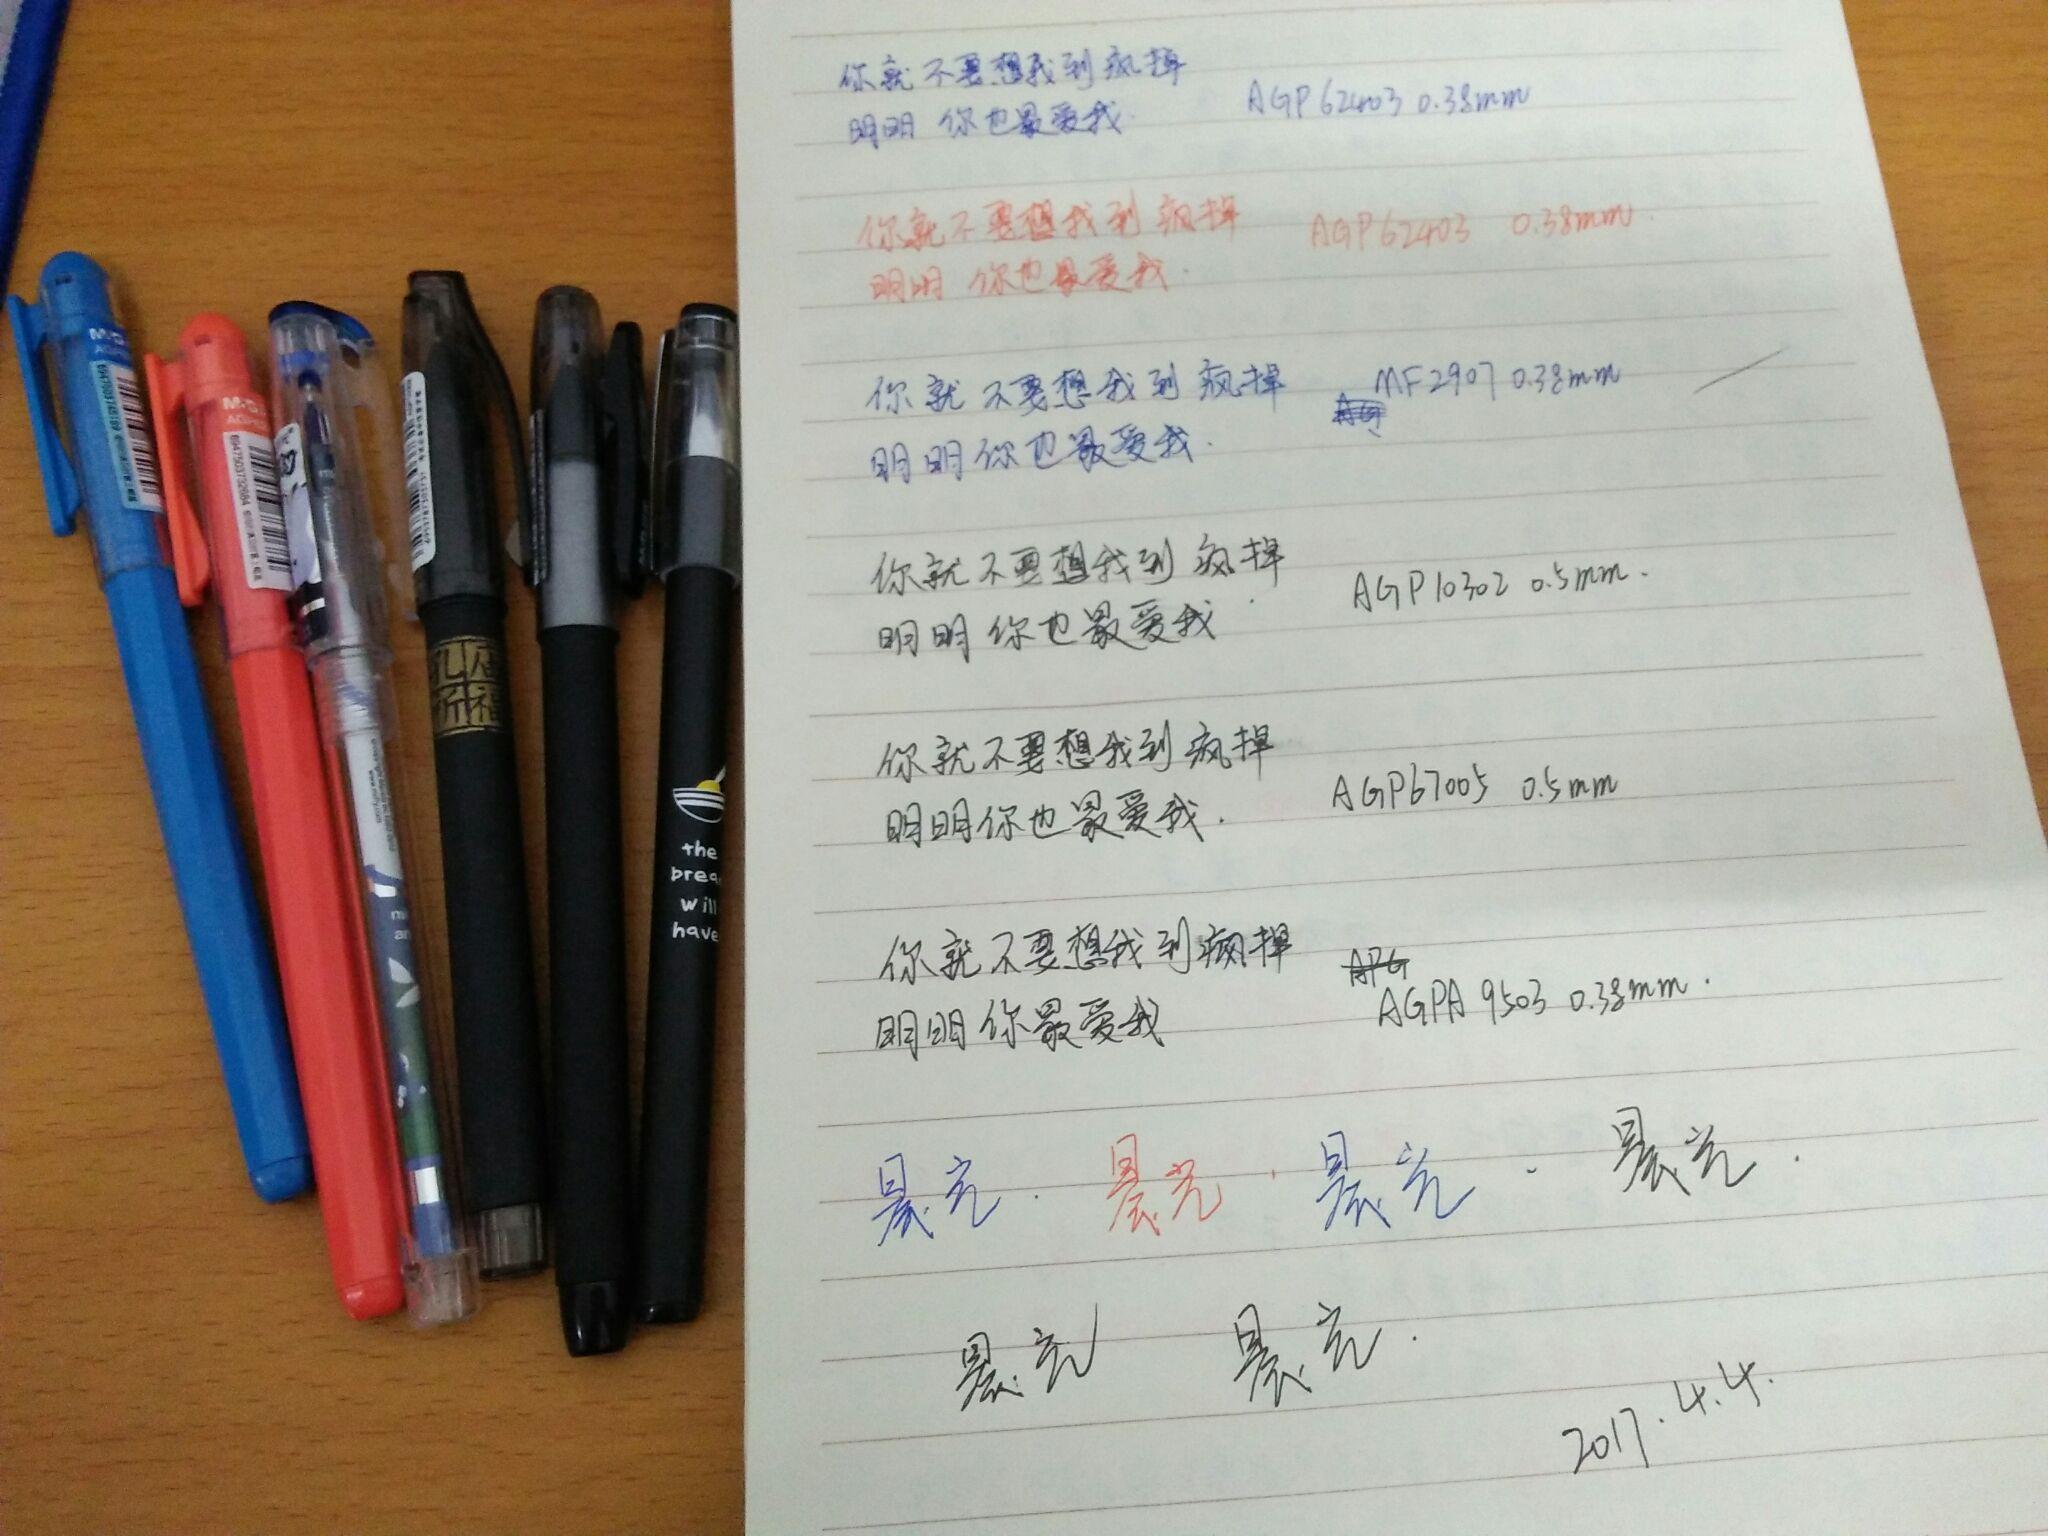 你就不要想我到疯掉
AGP62403 0.38mm
明明你也最爱我.
你就不要想我到疯掉
AGP62403 0.38mm.
明明你也最爱我.
你就不要想我到疯掉
MF2907 0.38mm
明明你也最爱我.
你就不要想我到疯掉
AGP10302 0.5mm.
明明你也最爱我
你就不要想我到疯掉
AGP67005 0.5mm
明明你也最爱我.
你就不要想我到疯掉
AGPA9503 0.38mm.
明明你最爱我
晨光. 晨光. 晨光. 晨光.
晨光 晨光.
2017.4.4.
M&G
6947503732684
孔庙
祈福
the
brea
will
have